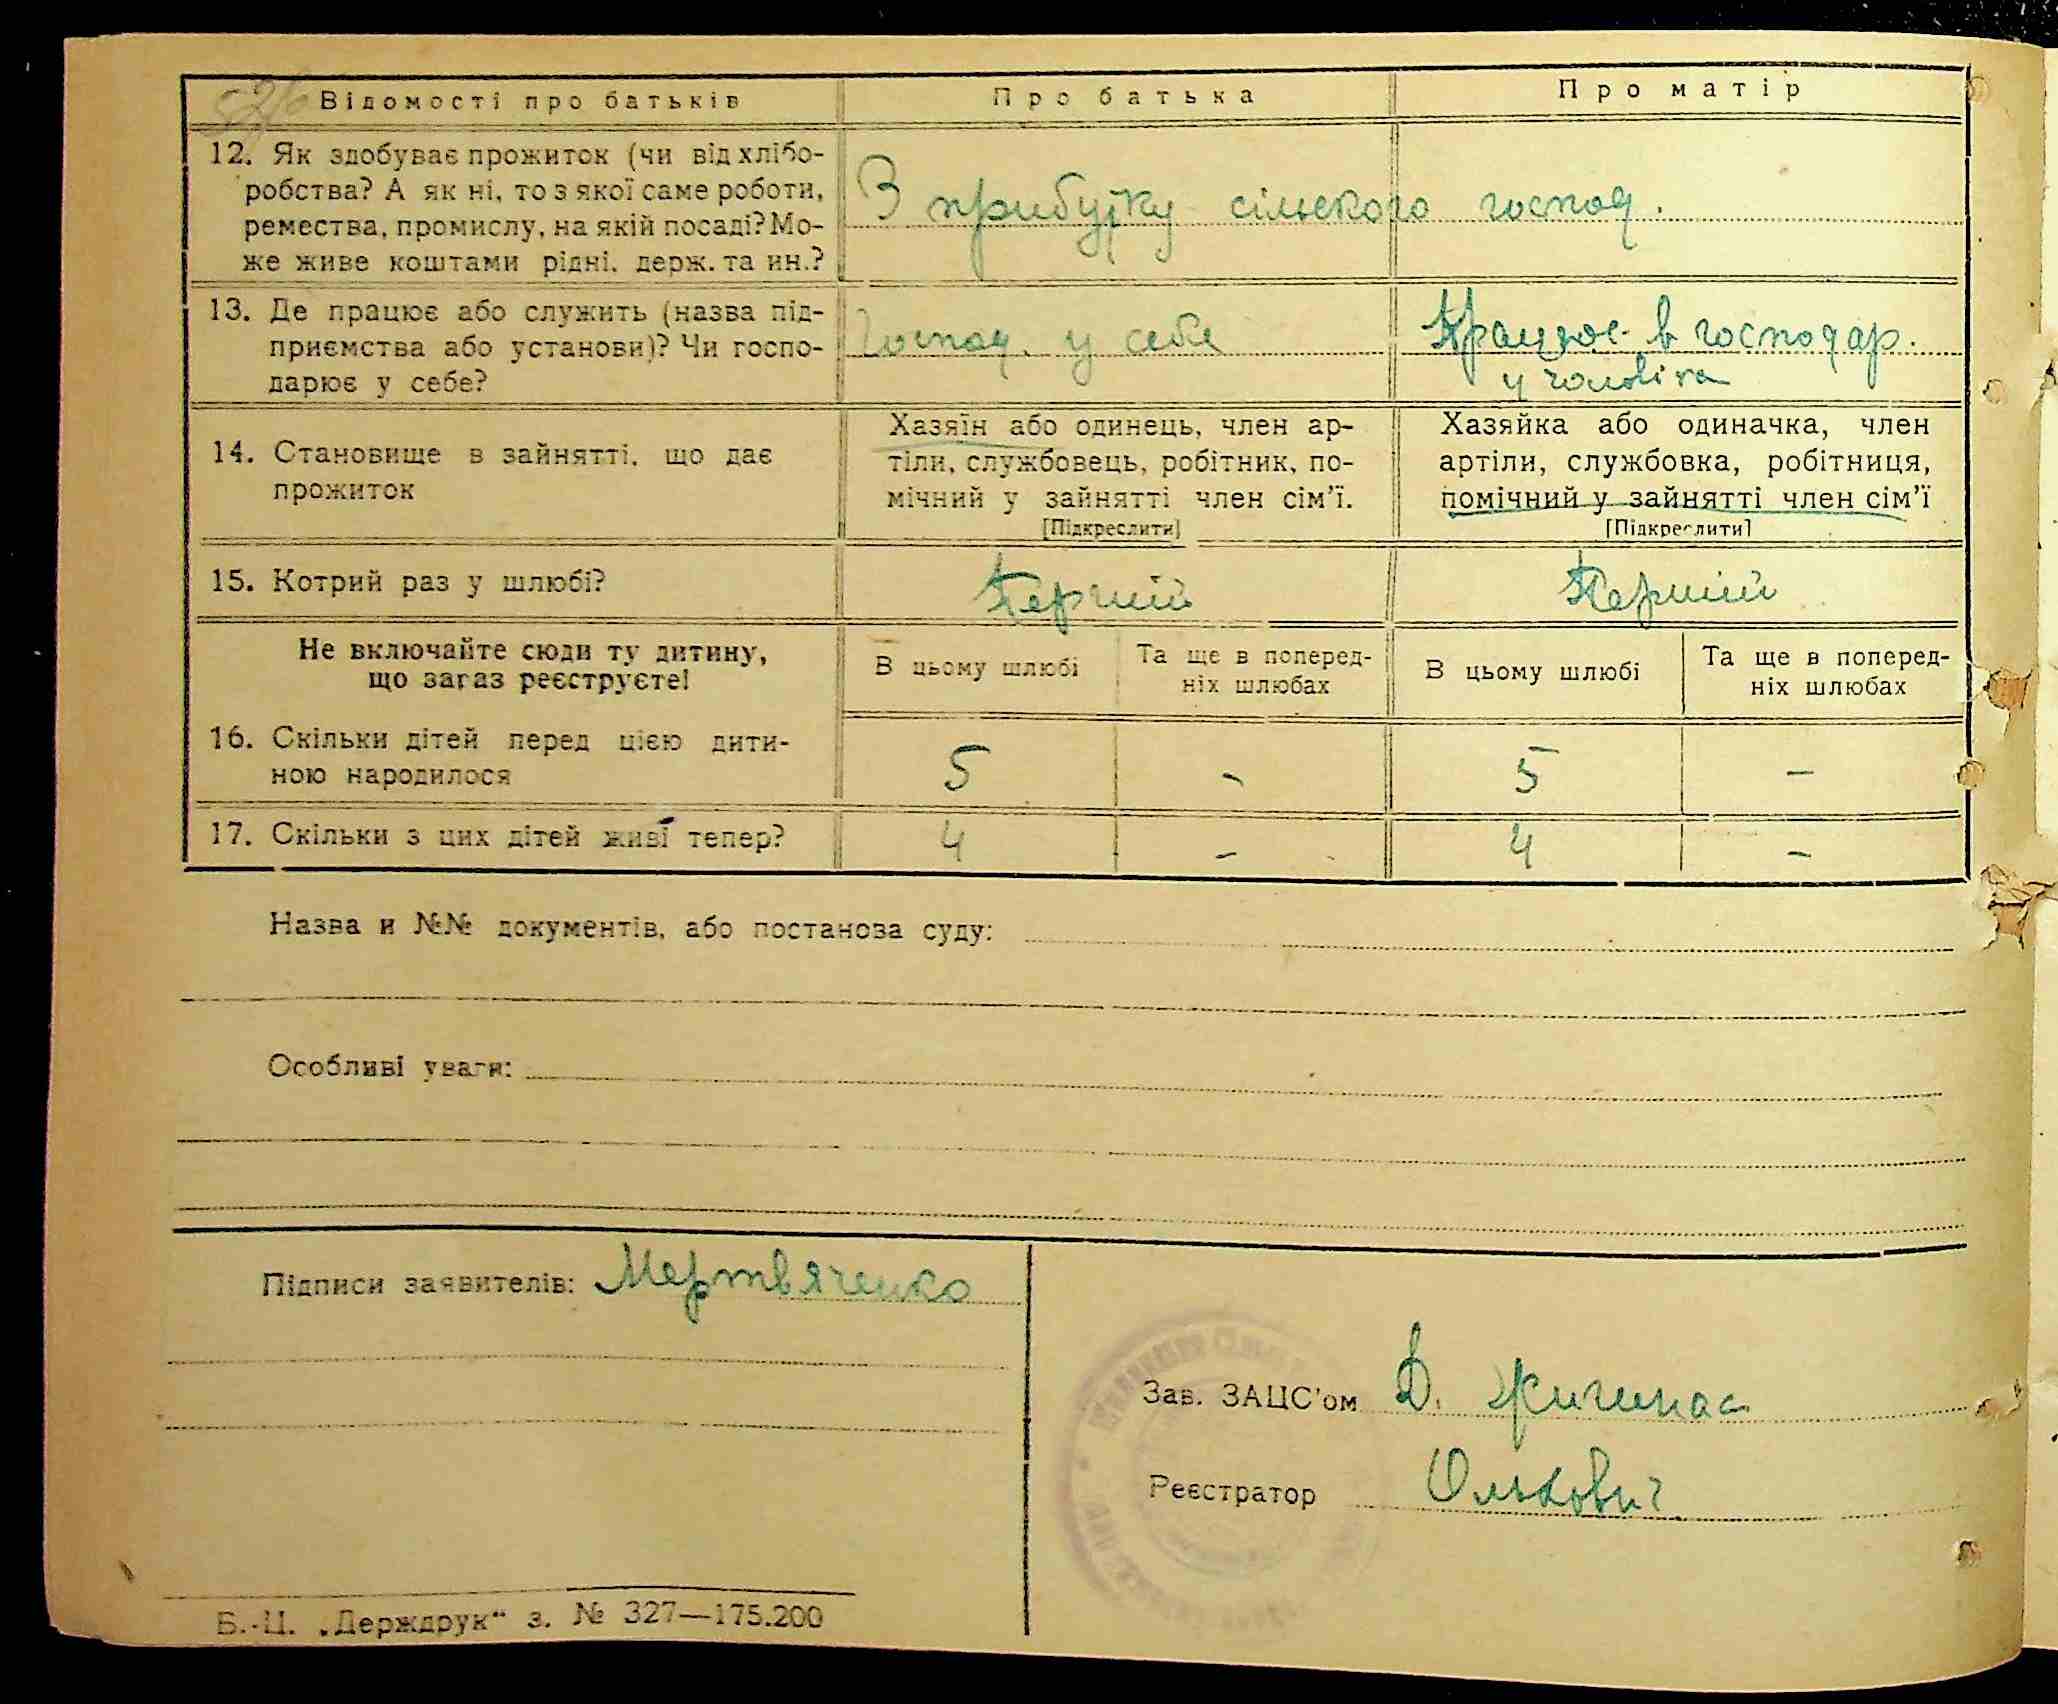 526
Відомості про батьків
Про батька
Про матір
12. Як здобуває прожиток (чи від хлібо-
робства? А як ні, то з якої саме роботи,
ремества, промислу, на якій посаді? Мо-
же живе коштами рідні, держ. та ин.?
З прибутку сільского господ.
13. Де працює або служить (назва під-
приємства або установи)? Чи госпо-
дарює у себе?
Господ. у себе
Працює в господар.
у чоловіка
14. Становище в зайнятті, що дає
прожиток
Хазяїн або одинець, член ар-
тіли, службовець, робітник, по-
мічний у зайнятті член сім’ї.
[Підкреслити]
Хазяйка або одиначка, член
артіли, службовка, робітниця,
помічний у зайнятті член сім’ї
[Підкреслити]
15. Котрий раз у шлюбі?
Перший
Перший
Не включайте сюди ту дитину,
що зараз реєструєте!
В цьому шлюбі
Та ще в поперед-
ніх шлюбах
В цьому шлюбі
Та ще в поперед-
ніх шлюбах
16. Скільки дітей перед цією дити-
ною народилося
5 - 5 -
17. Скільки з цих дітей живі тепер?
4 - 4 -
Назва и №№ документів, або постанова суду:
Особливі уваги:
Підписи заявителів: Мертвяченко
Зав. ЗАЦС’ом Д.
Реєстратор Олькович
Б.-Ц. „Держдрук“ з. № 327—175.200